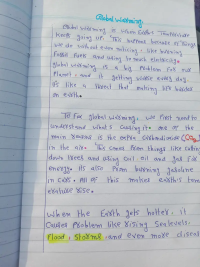 Global Warming
Global warming is when Earth's Temperature
keep going up. This happens because of things
we do without even noticing, like burning
fossil fuels and using to much electricity.
global warming is a big problem for our
Planet, and it getting worse every day
it's like a threat that making life harder
on earth.
To fix global warming, we first need to
understand what's causing it. one of the
main reasons is the extra carbondioxide (CO2)
in the air. This comes from things like cutting
down trees and using coal oil and gas for
energy. its also from burning gasoline
in cars. All of this makes earth's tem
erature rise.
When the Earth gets hotter, it
causes problem like rising sea levels.
flood, storms and even more diseas